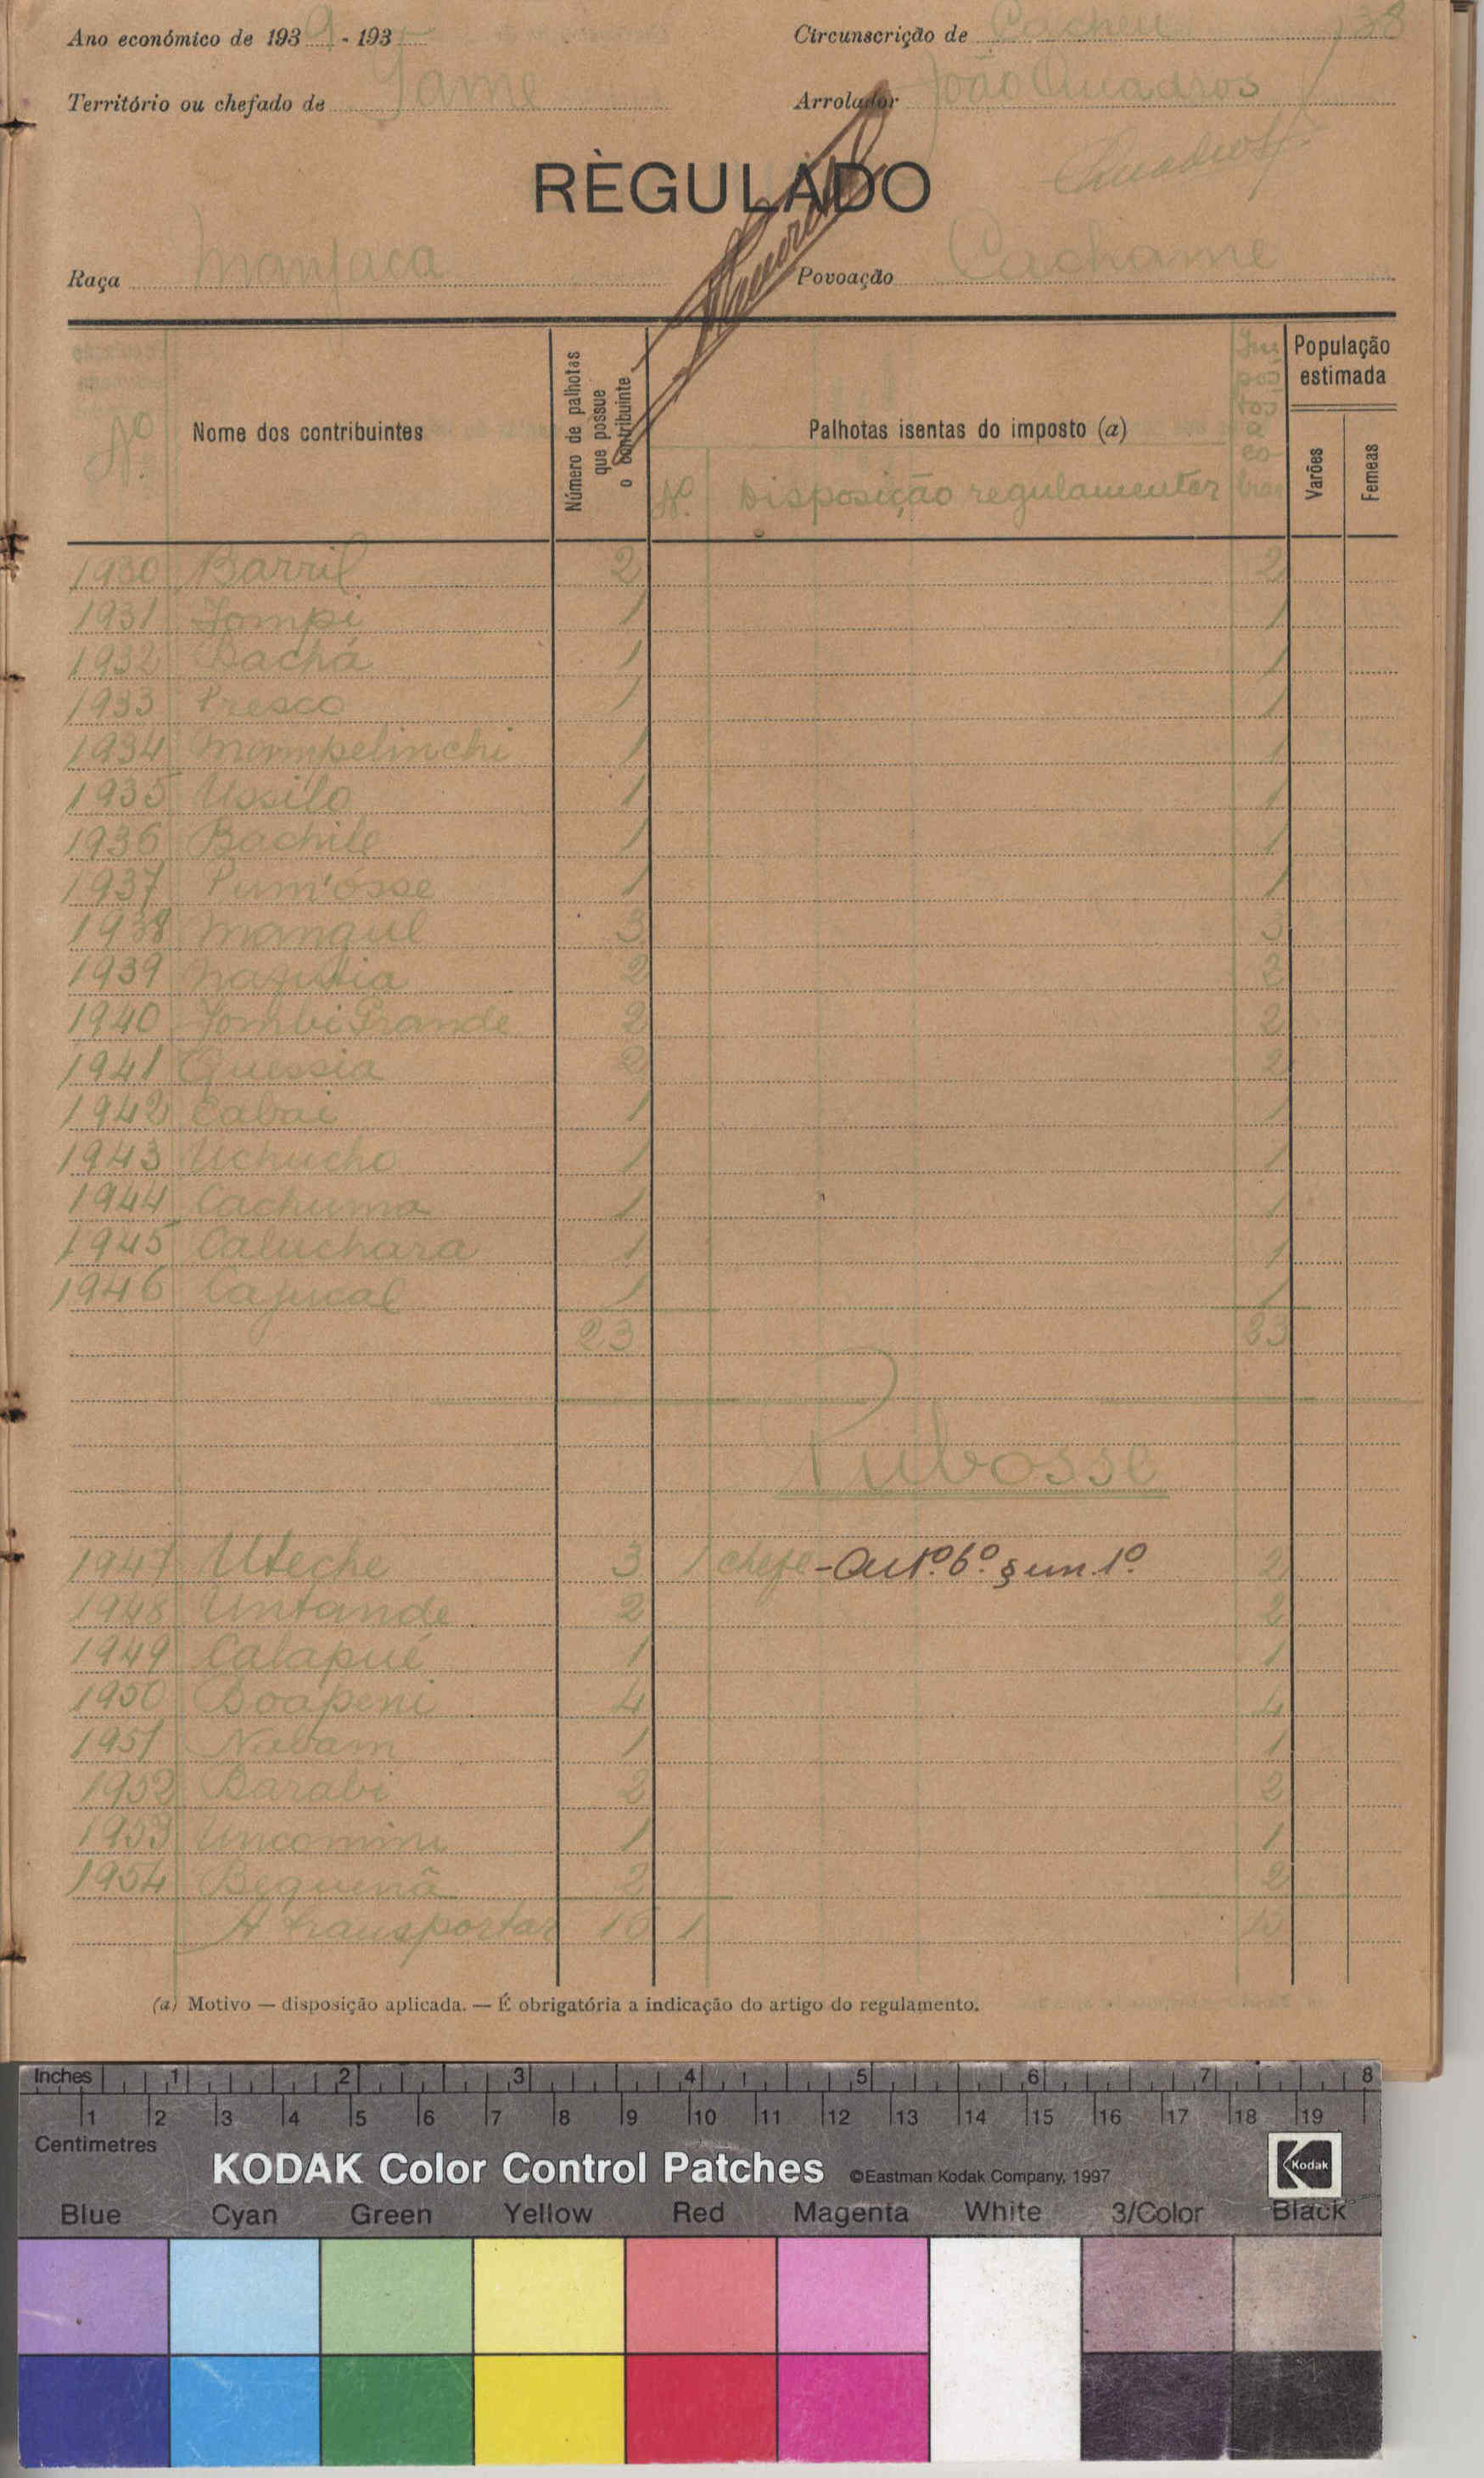 Ano económico de 1939 - 193
Circunscrição de Cacheu
138
Território ou chefado de Jame
Arrolador João Quadros
RÈGULADO
Raça Manjaca
Povoação Cachame
Nº
Nome dos contribuintes
Número de palhotas que possue o contribuinte
Palhotas isentas do imposto (a)
Nº Disposição regulamentar
Impostos a cobrar
População estimada
Varões
Femeas
1930 Barril 2 2
1931 Jompi 1 1
1932 Bachá 1 1
1933 Presco 1 1
1934 Mompelinchi 1 1
1935 Ussilo 1 1
1936 Bachile 1 1
1937 Pum'osse 1 1
1938 Mangul 3 3
1939 2 2
1940 Jombi Grande 2 2
1941 Quessia 2 2
1942 Cabai 1 1
1943 Uchucho 1 1
1944 Cachuma 1 1
1945 Caluchara 1 1
1946 Cajucal 1 1
23 23
Pubosse
1947 Uteche 3 1 chefe - Artº. 6º. § um. 1º 2
1948 Untande 2 2
1949 Calapué 1 1
1950 Boapeni 4 4
1951 Nabam 1 1
1952 Barabi 2 2
1953 Uncomini 1 1
1954 Bequenã 2 2
A transportar 16 1 15
(a) Motivo — disposição aplicada. — É obrigatória a indicação do artigo do regulamento.
Inches 1 2 3 4 5 6 7 8
1 2 3 4 5 6 7 8 9 10 11 12 13 14 15 16 17 18 19
Centimetres
KODAK Color Control Patches ©Eastman Kodak Company, 1997 Kodak
Blue Cyan Green Yellow Red Magenta White 3/Color Black